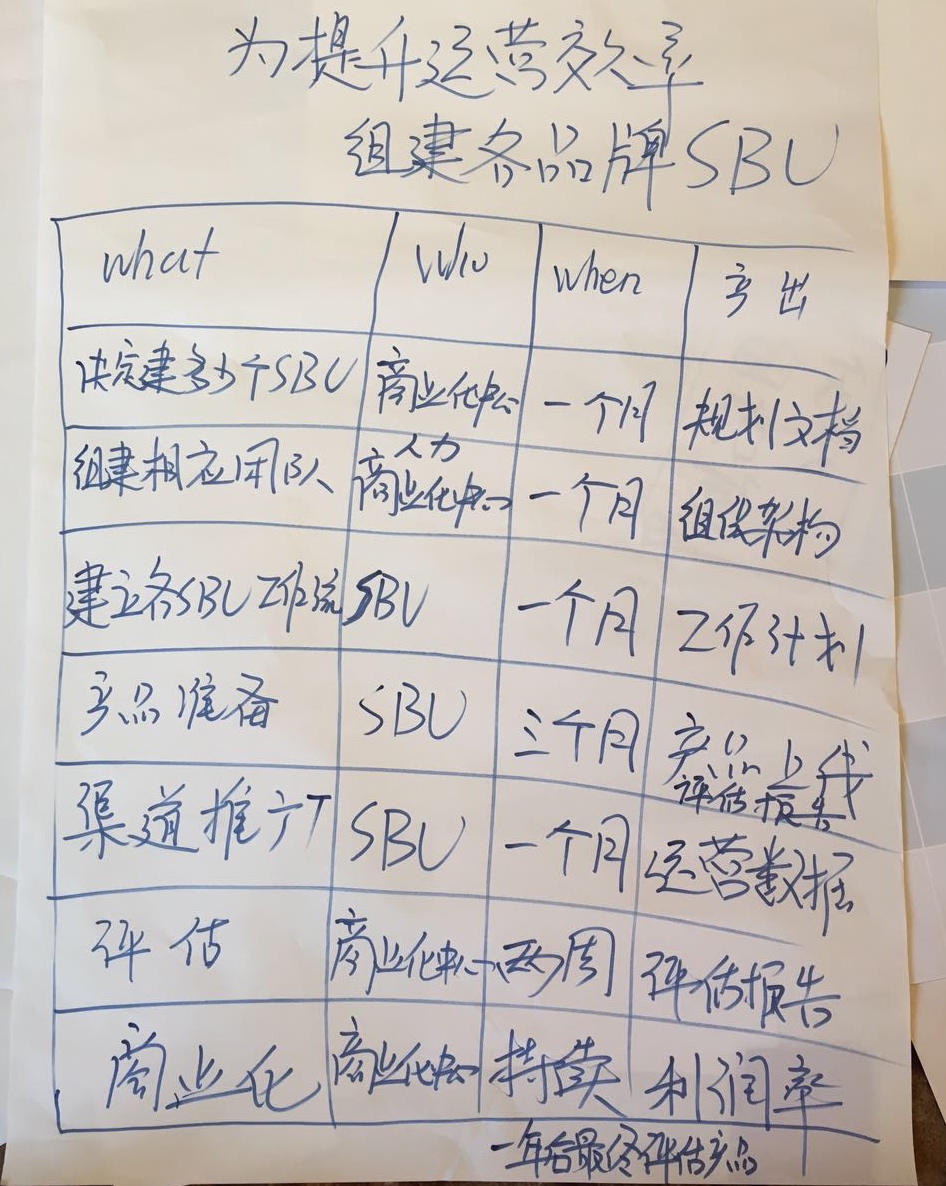 为提升运营效率
组建各品牌SBU
what who when 产出
决定建多少个SBU 商业化中心 一个月 规划文档
组建相应团队 人力 商业化中心 一个月 组织架构
建立各SBU工作流 SBU 一个月 工作计划
产品准备 SBU 三个月 产品上线 评估报告
渠道推广 SBU 一个月 运营数据
评估 商业化中心 两周 评估报告
商业化 商业化中心 持续 利润率
一年后最终评估产品